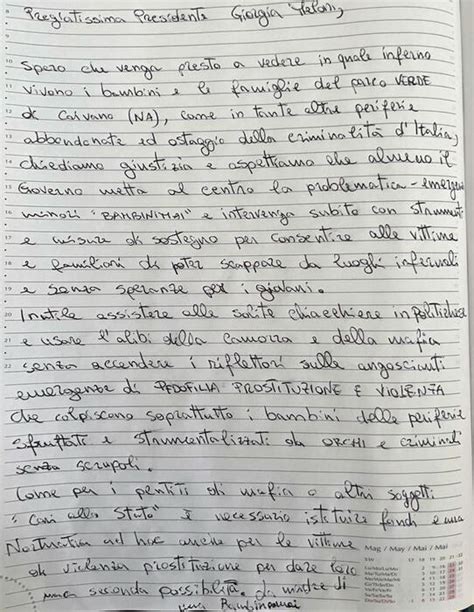 Pregiatissima Presidente Giorgia Meloni,
Spero che venga presto a vedere in quale inferno
vivono i bambini e le famiglie del parco VERDE
di Caivano (NA), come in tante altre periferie
abbandonate ed ostaggio della criminalità d'Italia,
chiediamo giustizia e aspettiamo che almeno il
Governo metta al centro la problematica-emergenza
minori "BAMBINIMAI" e intervenga subito con strumenti
e misure di sostegno per consentire alle vittime
e familiari di poter scappare da luoghi infernali
e senza speranze per i giovani.
Inutile assistere alle solite chiacchiere in politichese
e usare l'alibi della camorra e della mafia
senza accendere i riflettori sulla angosciante
emergenza di PEDOFILIA PROSTITUZIONE E VIOLENZA
che colpiscono soprattutto i bambini delle periferie
sfruttati e strumentalizzati da ORCHI e criminali
senza scrupoli.
Come per i pentiti di mafia o altri soggetti
"Cari allo Stato" è necessario istituire fondi e una
Normativa ad hoc anche per le vittime
di violenza prostituzione per dare loro
una seconda possibilità. La madre di
una Bambinamai
Mag / May / Mai / Mai